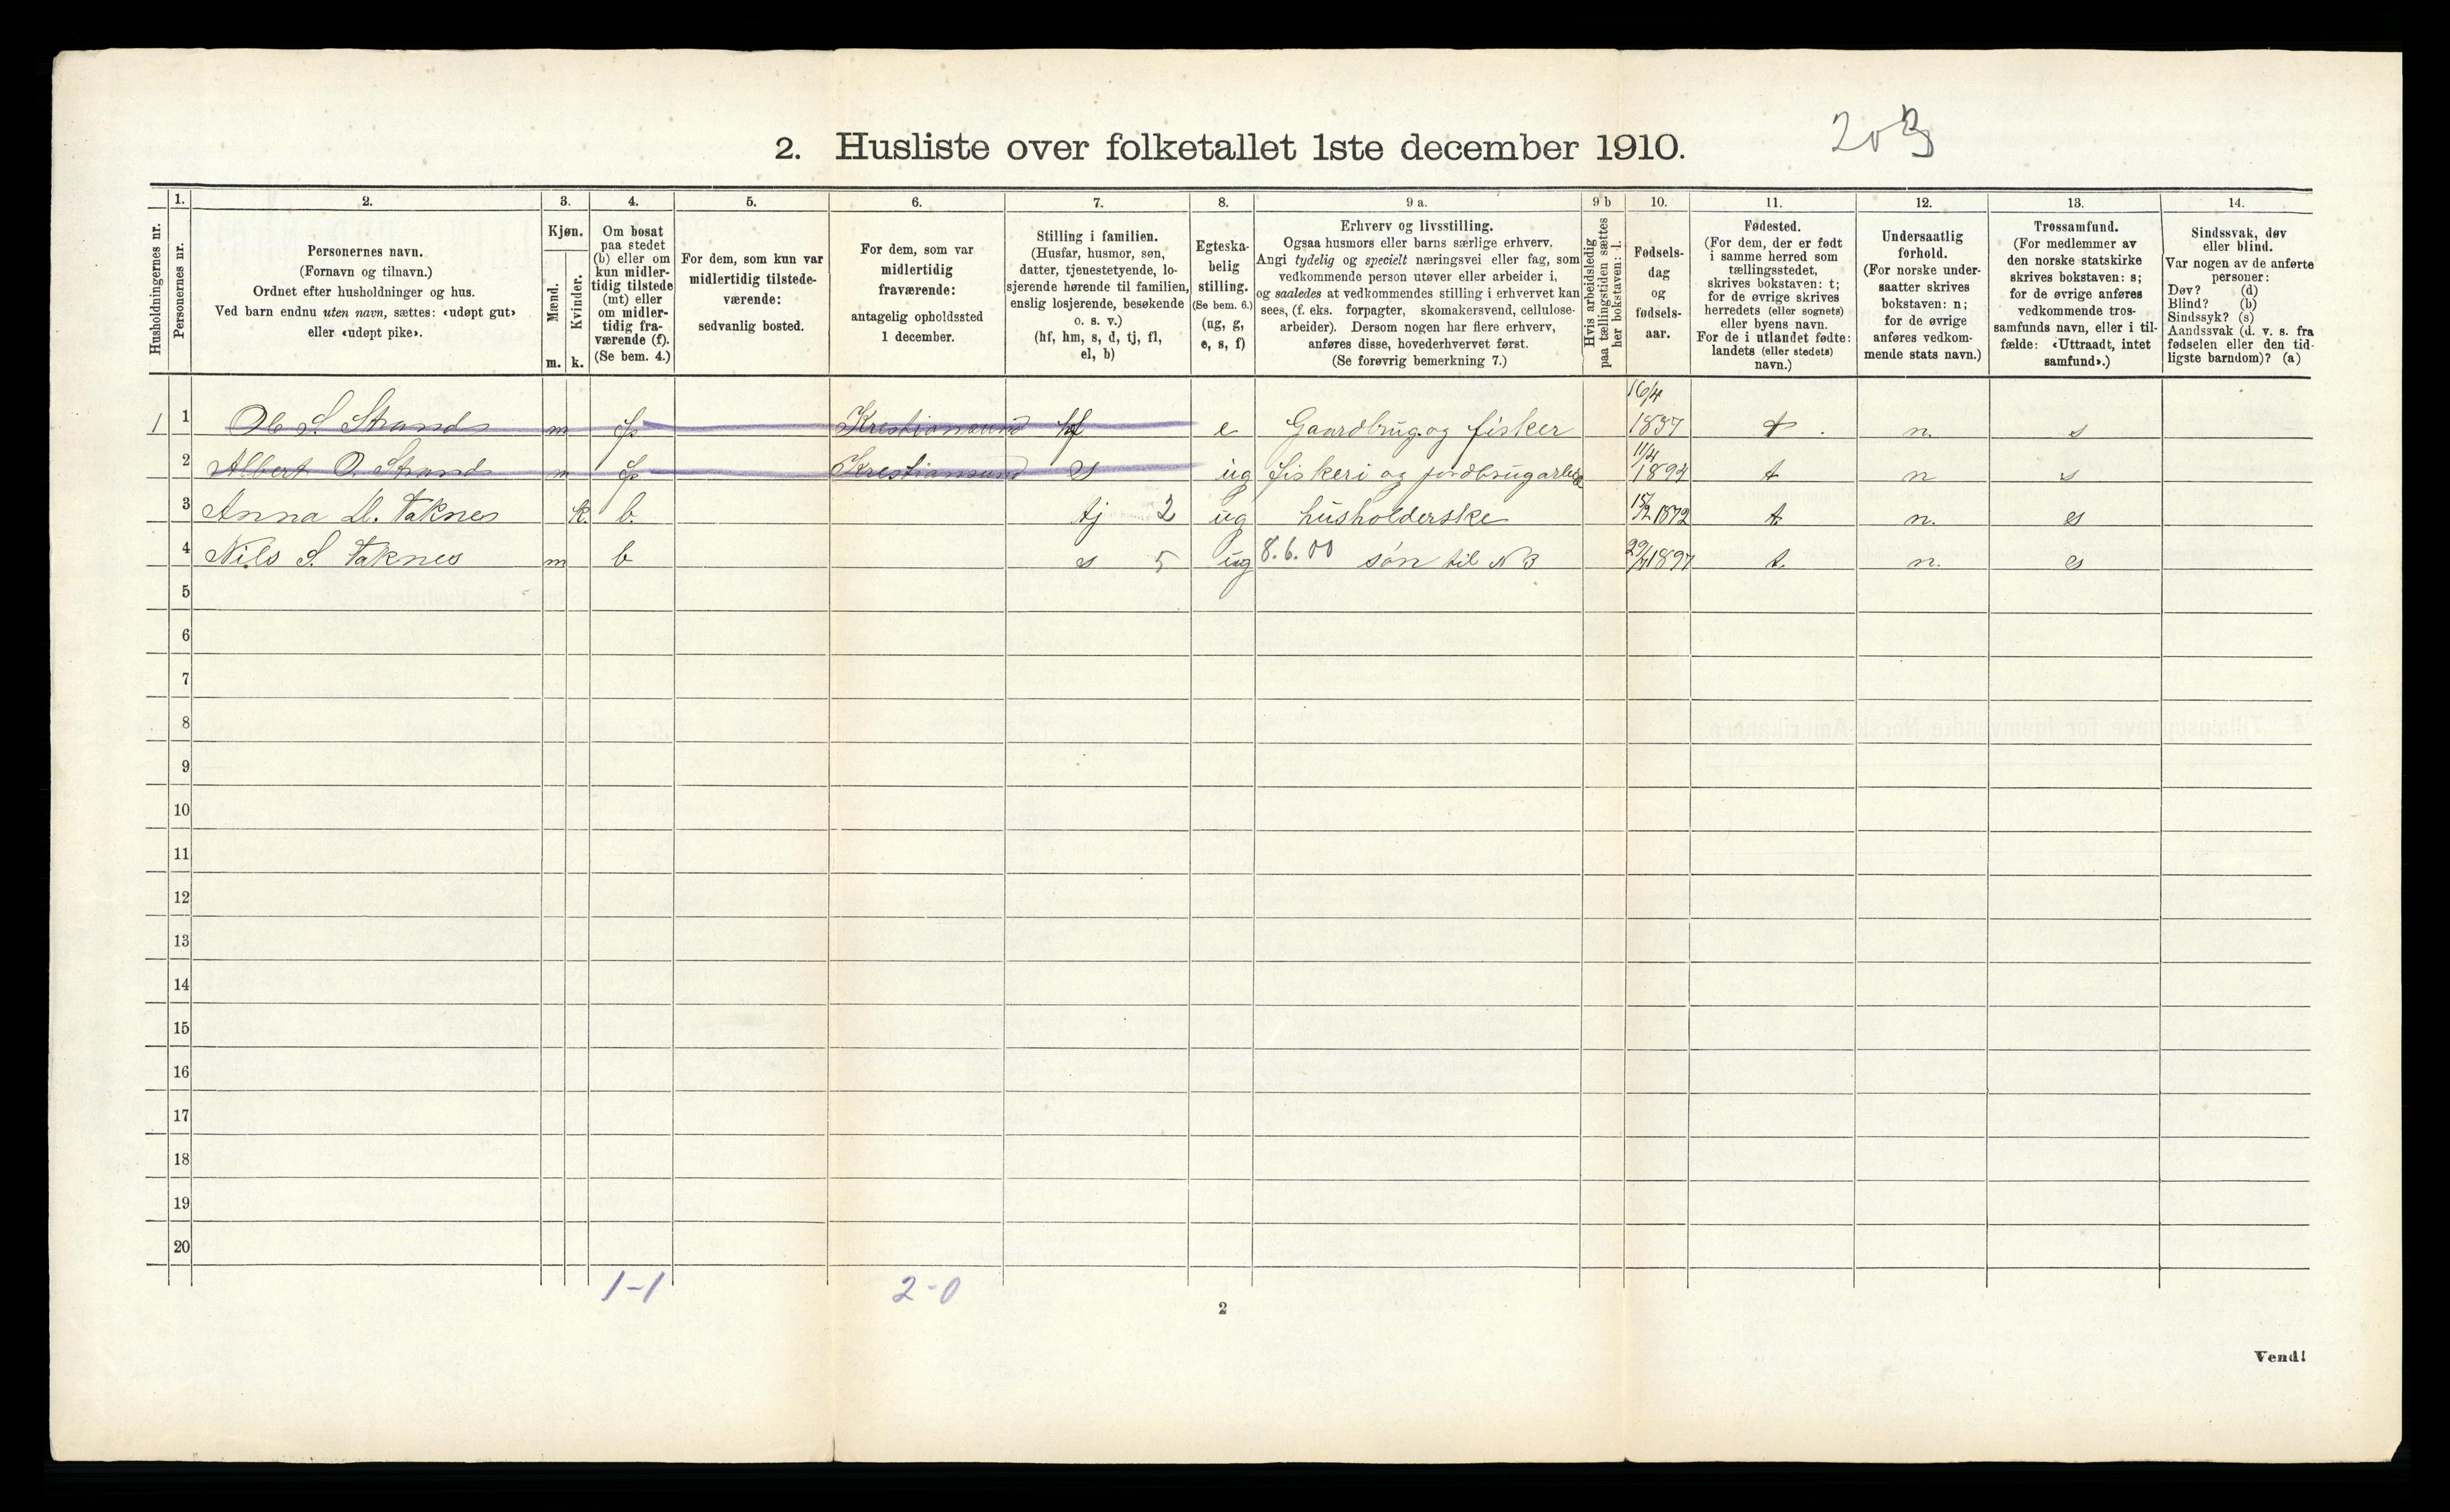 2. Husliste over folketallet 1ste december 1910.
203
Husholdningernes nr.
1.
Personernes nr.
2.
Personernes navn.
(Fornavn og tilnavn.)
Ordnet efter husholdninger og hus.
Ved barn endnu uten navn, sættes: «udøpt gut»
eller «udøpt pike».
3.
Kjøn.
Mænd.
Kvinder.
m. k.
4.
Om bosat
paa stedet
(b) eller om
kun midler-
tidig tilstede
(mt) eller
om midler-
tidig fra-
værende (f).
(Se bem. 4.)
5.
For dem, som kun var
midlertidig tilstede-
værende:
sedvanlig bosted.
6.
For dem, som var
midlertidig
fraværende:
antagelig opholdssted
1 december.
7.
Stilling i familien.
(Husfar, husmor, søn,
datter, tjenestetyende, lo-
sjerende hørende til familien,
enslig losjerende, besøkende
o. s. v.)
(hf, hm, s, d, tj, fl,
el, b)
8.
Egteska-
belig
stilling.
(Se bem. 6.)
(ug, g,
e, s, f)
9 a.
Erhverv og livsstilling.
Ogsaa husmors eller barns særlige erhverv.
Angi tydelig og specielt næringsvei eller fag, som
vedkommende person utøver eller arbeider i,
og saaledes at vedkommendes stilling i erhvervet kan
sees, (f. eks. forpagter, skomakersvend, cellulose-
arbeider). Dersom nogen har flere erhverv,
anføres disse, hovederhvervet først.
(Se forøvrig bemerkning 7.)
9 b
Hvis arbeidsledig
paa tællingstiden sættes
her bokstaven: l.
10.
Fødsels-
dag
og
fødsels-
aar.
11.
Fødested.
(For dem, der er født
i samme herred som
tællingsstedet,
skrives bokstaven: t;
for de øvrige skrives
herredets (eller sognets)
eller byens navn.
For de i utlandet fødte:
landets (eller stedets)
navn.)
12.
Undersaatlig
forhold.
(For norske under-
saatter skrives
bokstaven: n;
for de øvrige
anføres vedkom-
mende stats navn.)
13.
Trossamfund.
(For medlemmer av
den norske statskirke
skrives bokstaven: s;
for de øvrige anføres
vedkommende tros-
samfunds navn, eller i til-
fælde: «Uttraadt, intet
samfund».)
14.
Sindssvak, døv
eller blind.
Var nogen av de anførte
personer:
Døv? (d)
Blind? (b)
Sindssyk? (s)
Aandssvak (d. v. s. fra
fødselen eller den tid-
ligste barndom)? (a)
1 1 Ole S. Strand m f Krestiansund hf e Gaardbrug. og fisker 16/4 1837 t. n. s
2 Albert O. Strand m f Krestiansund s ug fiskeri og jordbrugarbeide 11/4 1894 t n s
3 Anna M. Taknes k. b. tj 2 ug husholderske 15/2 1872 t. n. s
4 Nils S. Taknes m b s 5 ug 8.6.00 søn til N 3 1897 t. n. s
5
6
7
8
9
10
11
12
13
14
15
16
17
18
19
20
1-1 2-0
2
Vend!